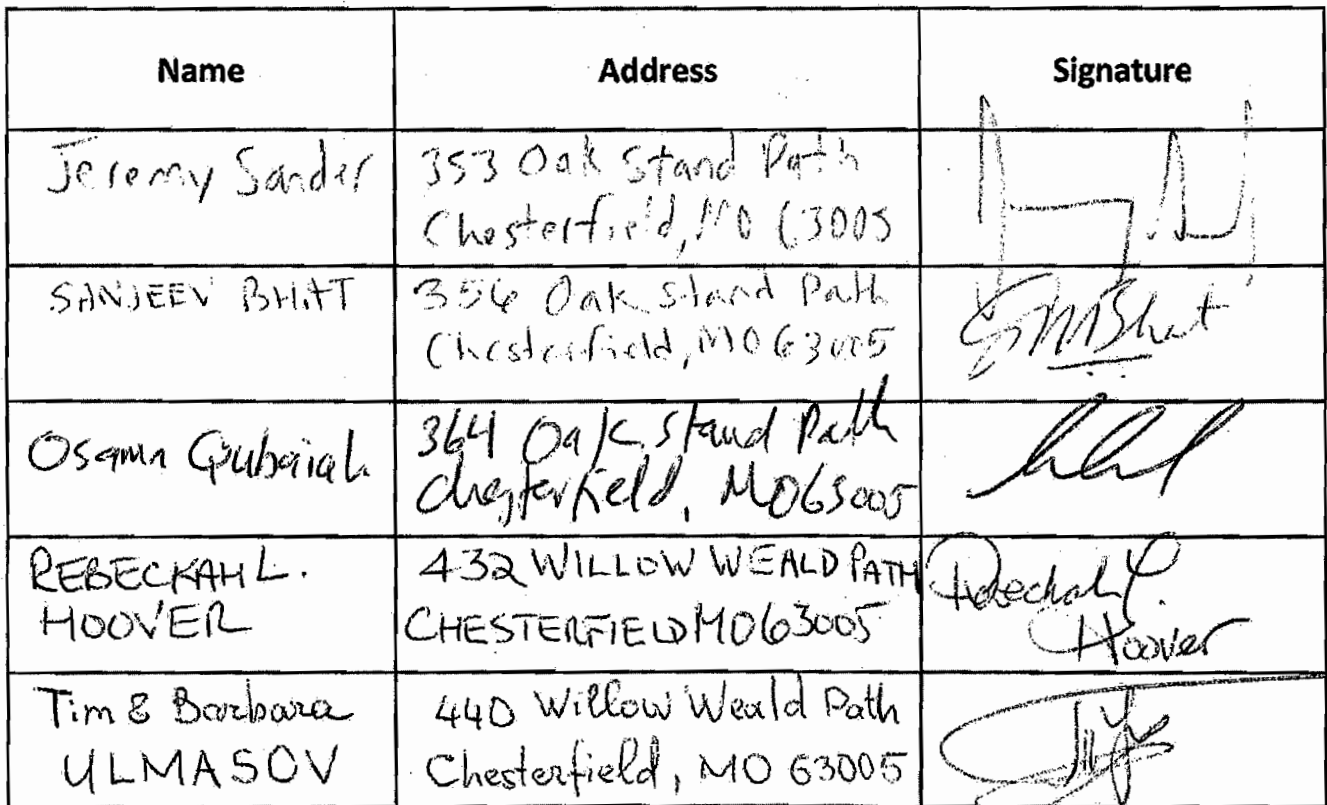 Name Address Signature
Jeremy Sander
353 Oak Stand Path
Chesterfield, MO 63005
SANJEEV BHATT
356 Oak Stand Path
Chesterfield, MO 63005
SMBhatt
Osama Qubaiah
364 Oak Stand Path
Chesterfield, MO 63005
REBECKAH L.
HOOVER
432 WILLOW WEALD PATH
CHESTERFIELD MO 63005
Rebeckah L.
Hoover
Tim & Barbara
ULMASOV
440 Willow Weald Path
Chesterfield, MO 63005